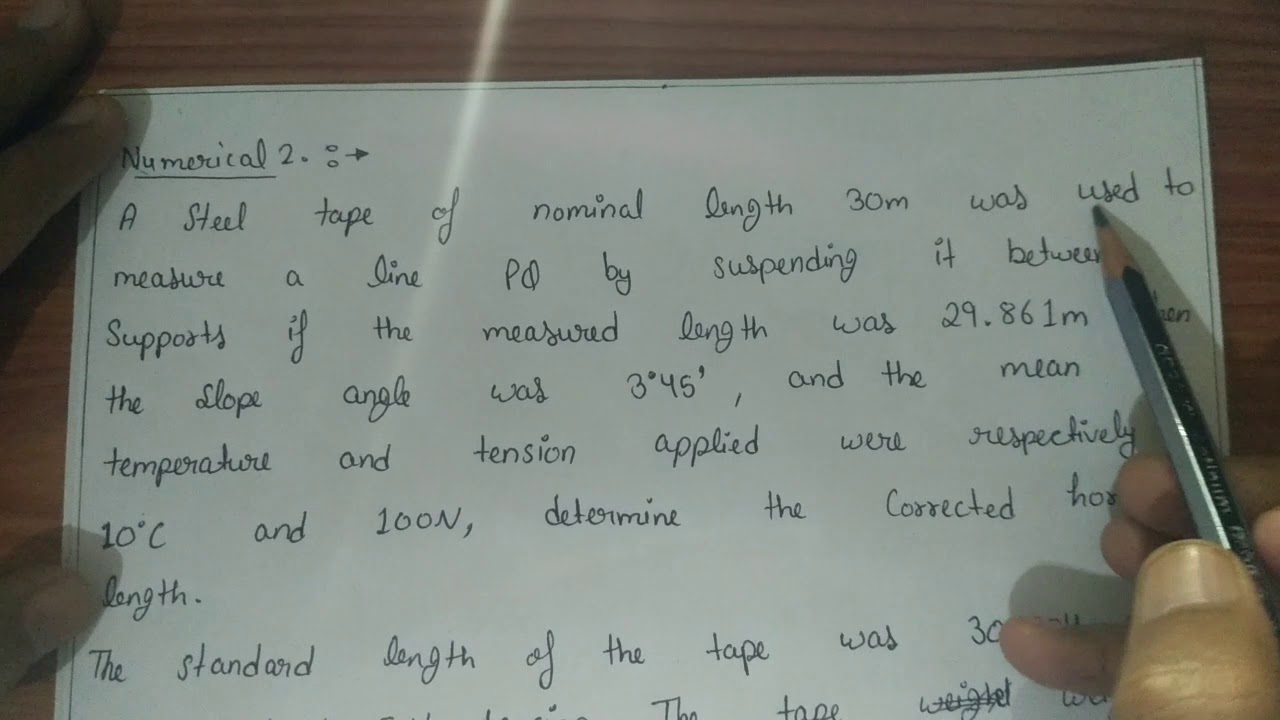 Numerical 2. :→
A Steel tape of nominal length 30m was used to
measure a line PQ by suspending it between
Supports if the measured length was 29.861m
the slope angle was 3°45', and the mean
temperature and tension applied were respectively
10°C and 100N, determine the Corrected
length.
The standard length of the tape was
The tape